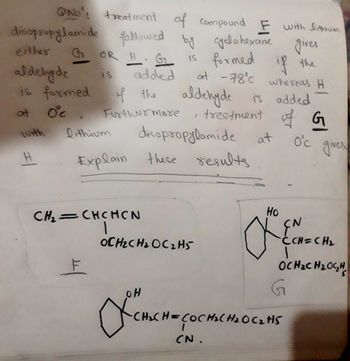 QNo': treatment of compound F with lithium
diisopropylamide followed by cyclohexane gives
either G OR H. G is formed if the
aldehyde is added at -78°c whereas H
is formed if the aldehyde is added
at 0°c. Furthurmore, treatment of G
with lithium diisopropylamide at 0°c gives
H. Explain these results.
CH2=CHCHCN
OCH2CH2OC2H5
F
HO
CN
CCH=CH2
OCH2CH2OC2H5
G
OH
CH2CH=COCH2CH2OC2H5
CN.